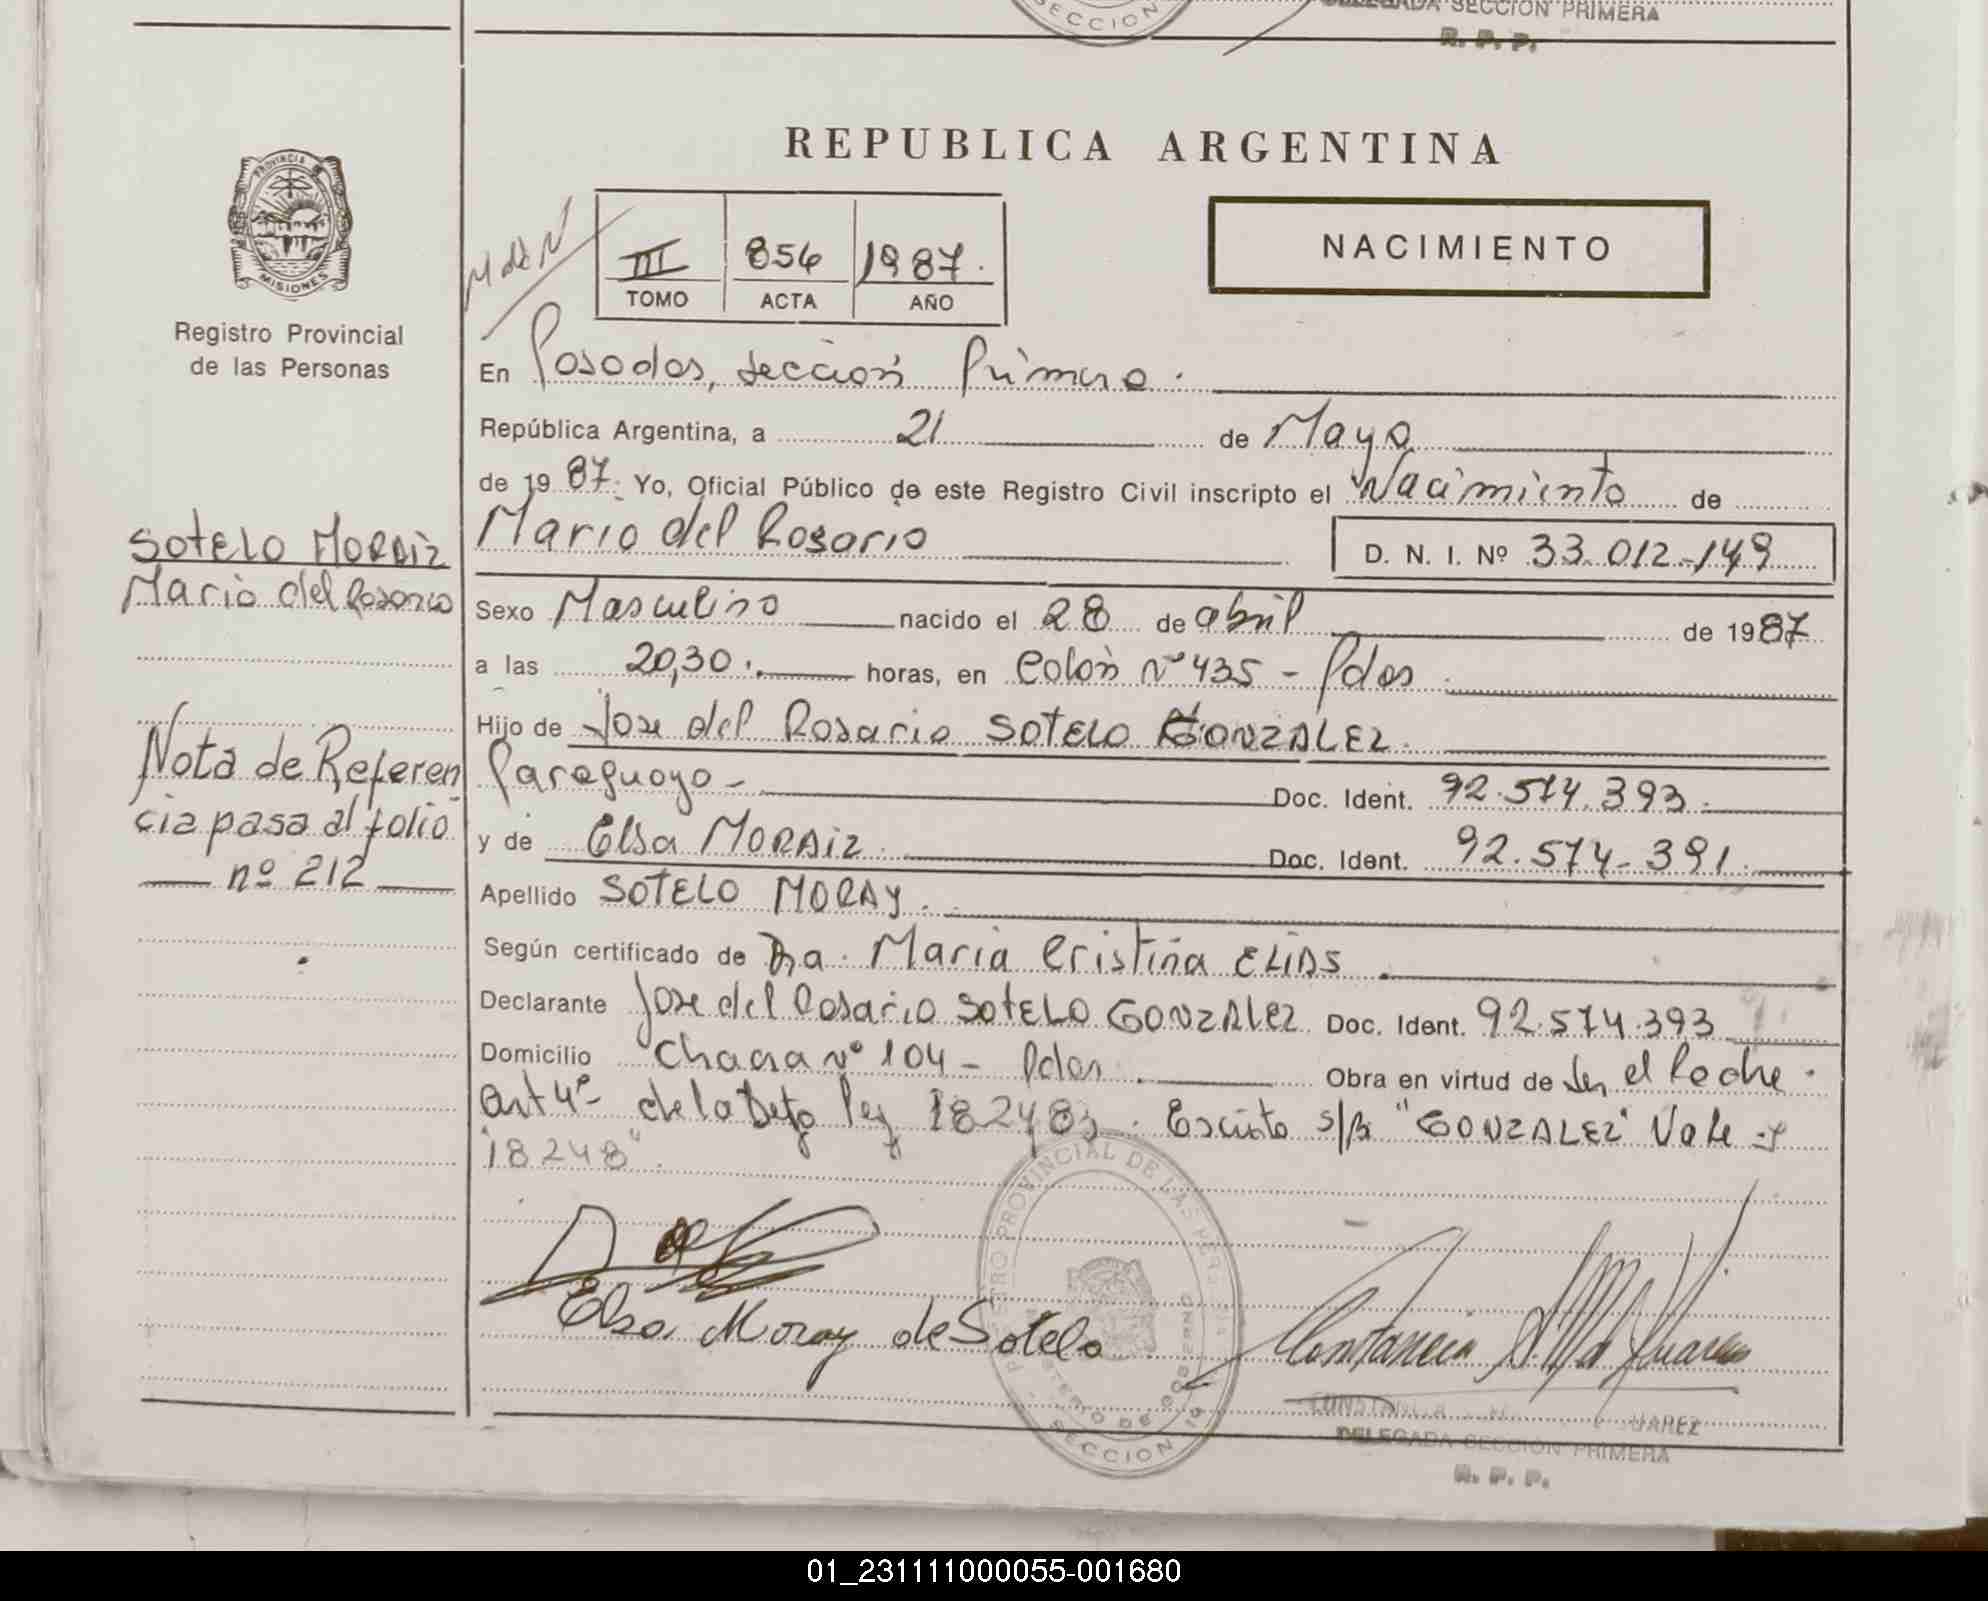 SECCION
DELEGADA SECCION PRIMERA
R. P. P.
REPUBLICA ARGENTINA
PROVINCIA
MISIONES
Registro Provincial
de las Personas
M de N
III 856 1987.
TOMO ACTA AÑO
NACIMIENTO
En Posadas, sección Primera.
República Argentina, a 21 de Mayo
de 1987. Yo, Oficial Público de este Registro Civil inscripto el Nacimiento de
Mario del Rosario D. N. I. Nº 33.012-149
Sexo Masculino nacido el 28 de abril de 1987
a las 20,30. horas, en Colón Nº 435 - Pdas
Hijo de Jose del Rosario SOTELO GONZALEZ.
Paraguayo - Doc. Ident. 92.574.393.
y de Elsa MORAiz. Doc. Ident. 92.574-391.
Apellido SOTELO MORAY.
Según certificado de Dra. Maria Cristina ELIAS.
Declarante Jose del Rosario SOTELO GONZALEZ Doc. Ident. 92.574.393
Domicilio Chacra Nº 104 - Pdas. Obra en virtud de Ser el Padre.
Art 4º de la Ley 18248. Escrito s/B "GONZALEZ" Vale y
"18248".
SOTELO MORAiz
Mario del Rosario
Nota de Referen
cia pasa al folio
nº 212
Elsa Moray de Sotelo
REGISTRO PROVINCIAL DE LAS PERSONAS
MINISTERIO DE GOBIERNO
SECCION 1a
SUAREZ
DELEGADA SECCION PRIMERA
R. P. P.
01_231111000055-001680